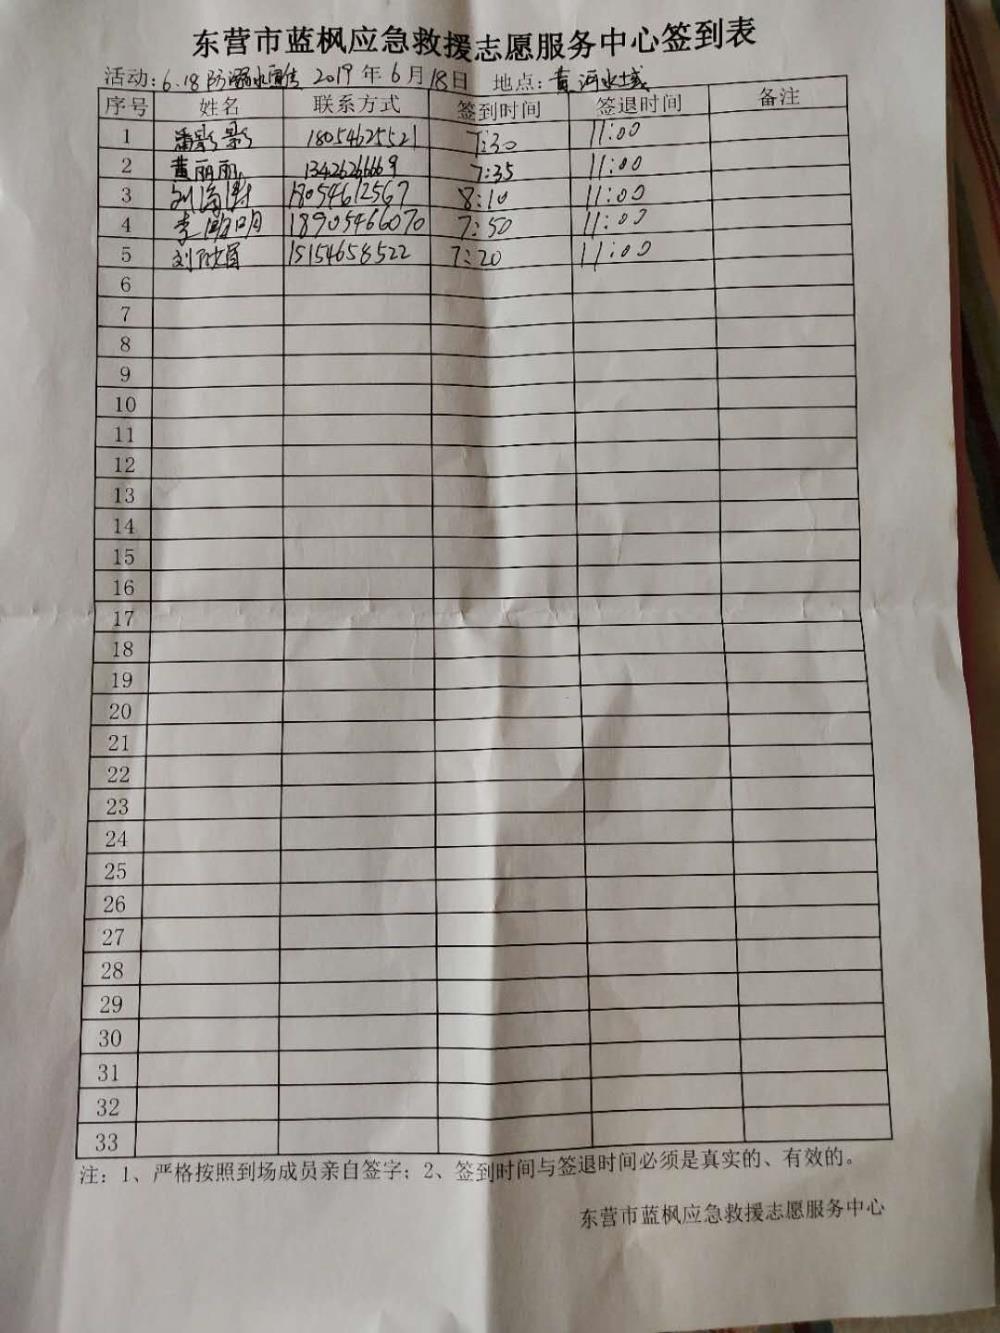 东营市蓝枫应急救援志愿服务中心签到表
活动: 6.18防溺水宣传 2019年6月18日 地点: 黄河水域
序号 姓名 联系方式 签到时间 签退时间 备注
1 潘影影 18054625521 7:30 11:00
2 黄丽丽 13426266669 7:35 11:00
3 刘 18054612567 8:10 11:00
4 李 明 18905466070 7:50 11:00
5 刘 15154658522 7:20 11:00
6
7
8
9
10
11
12
13
14
15
16
17
18
19
20
21
22
23
24
25
26
27
28
29
30
31
32
33
注：1、严格按照到场成员亲自签字；2、签到时间与签退时间必须是真实的、有效的。
东营市蓝枫应急救援志愿服务中心